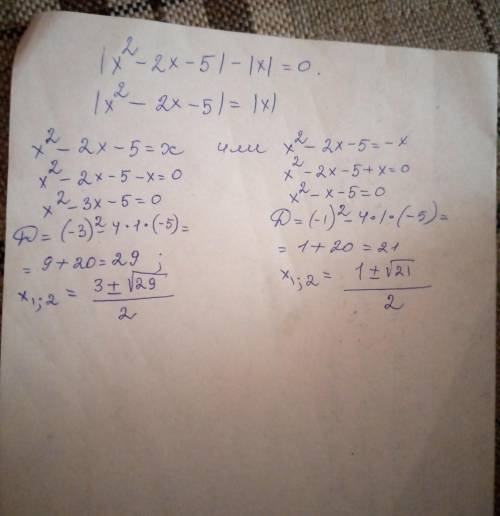 |x² - 2x - 5| - |x| = 0.
|x² - 2x - 5| = |x|
x² - 2x - 5 = x или x² - 2x - 5 = -x
x² - 2x - 5 - x = 0
x² - 3x - 5 = 0
D = (-3)² - 4·1·(-5) =
= 9 + 20 = 29 ;
x₁;₂ = (3 ± √29)/2
x² - 2x - 5 + x = 0
x² - x - 5 = 0
D = (-1)² - 4·1·(-5) =
= 1 + 20 = 21
x₁;₂ = (1 ± √21)/2